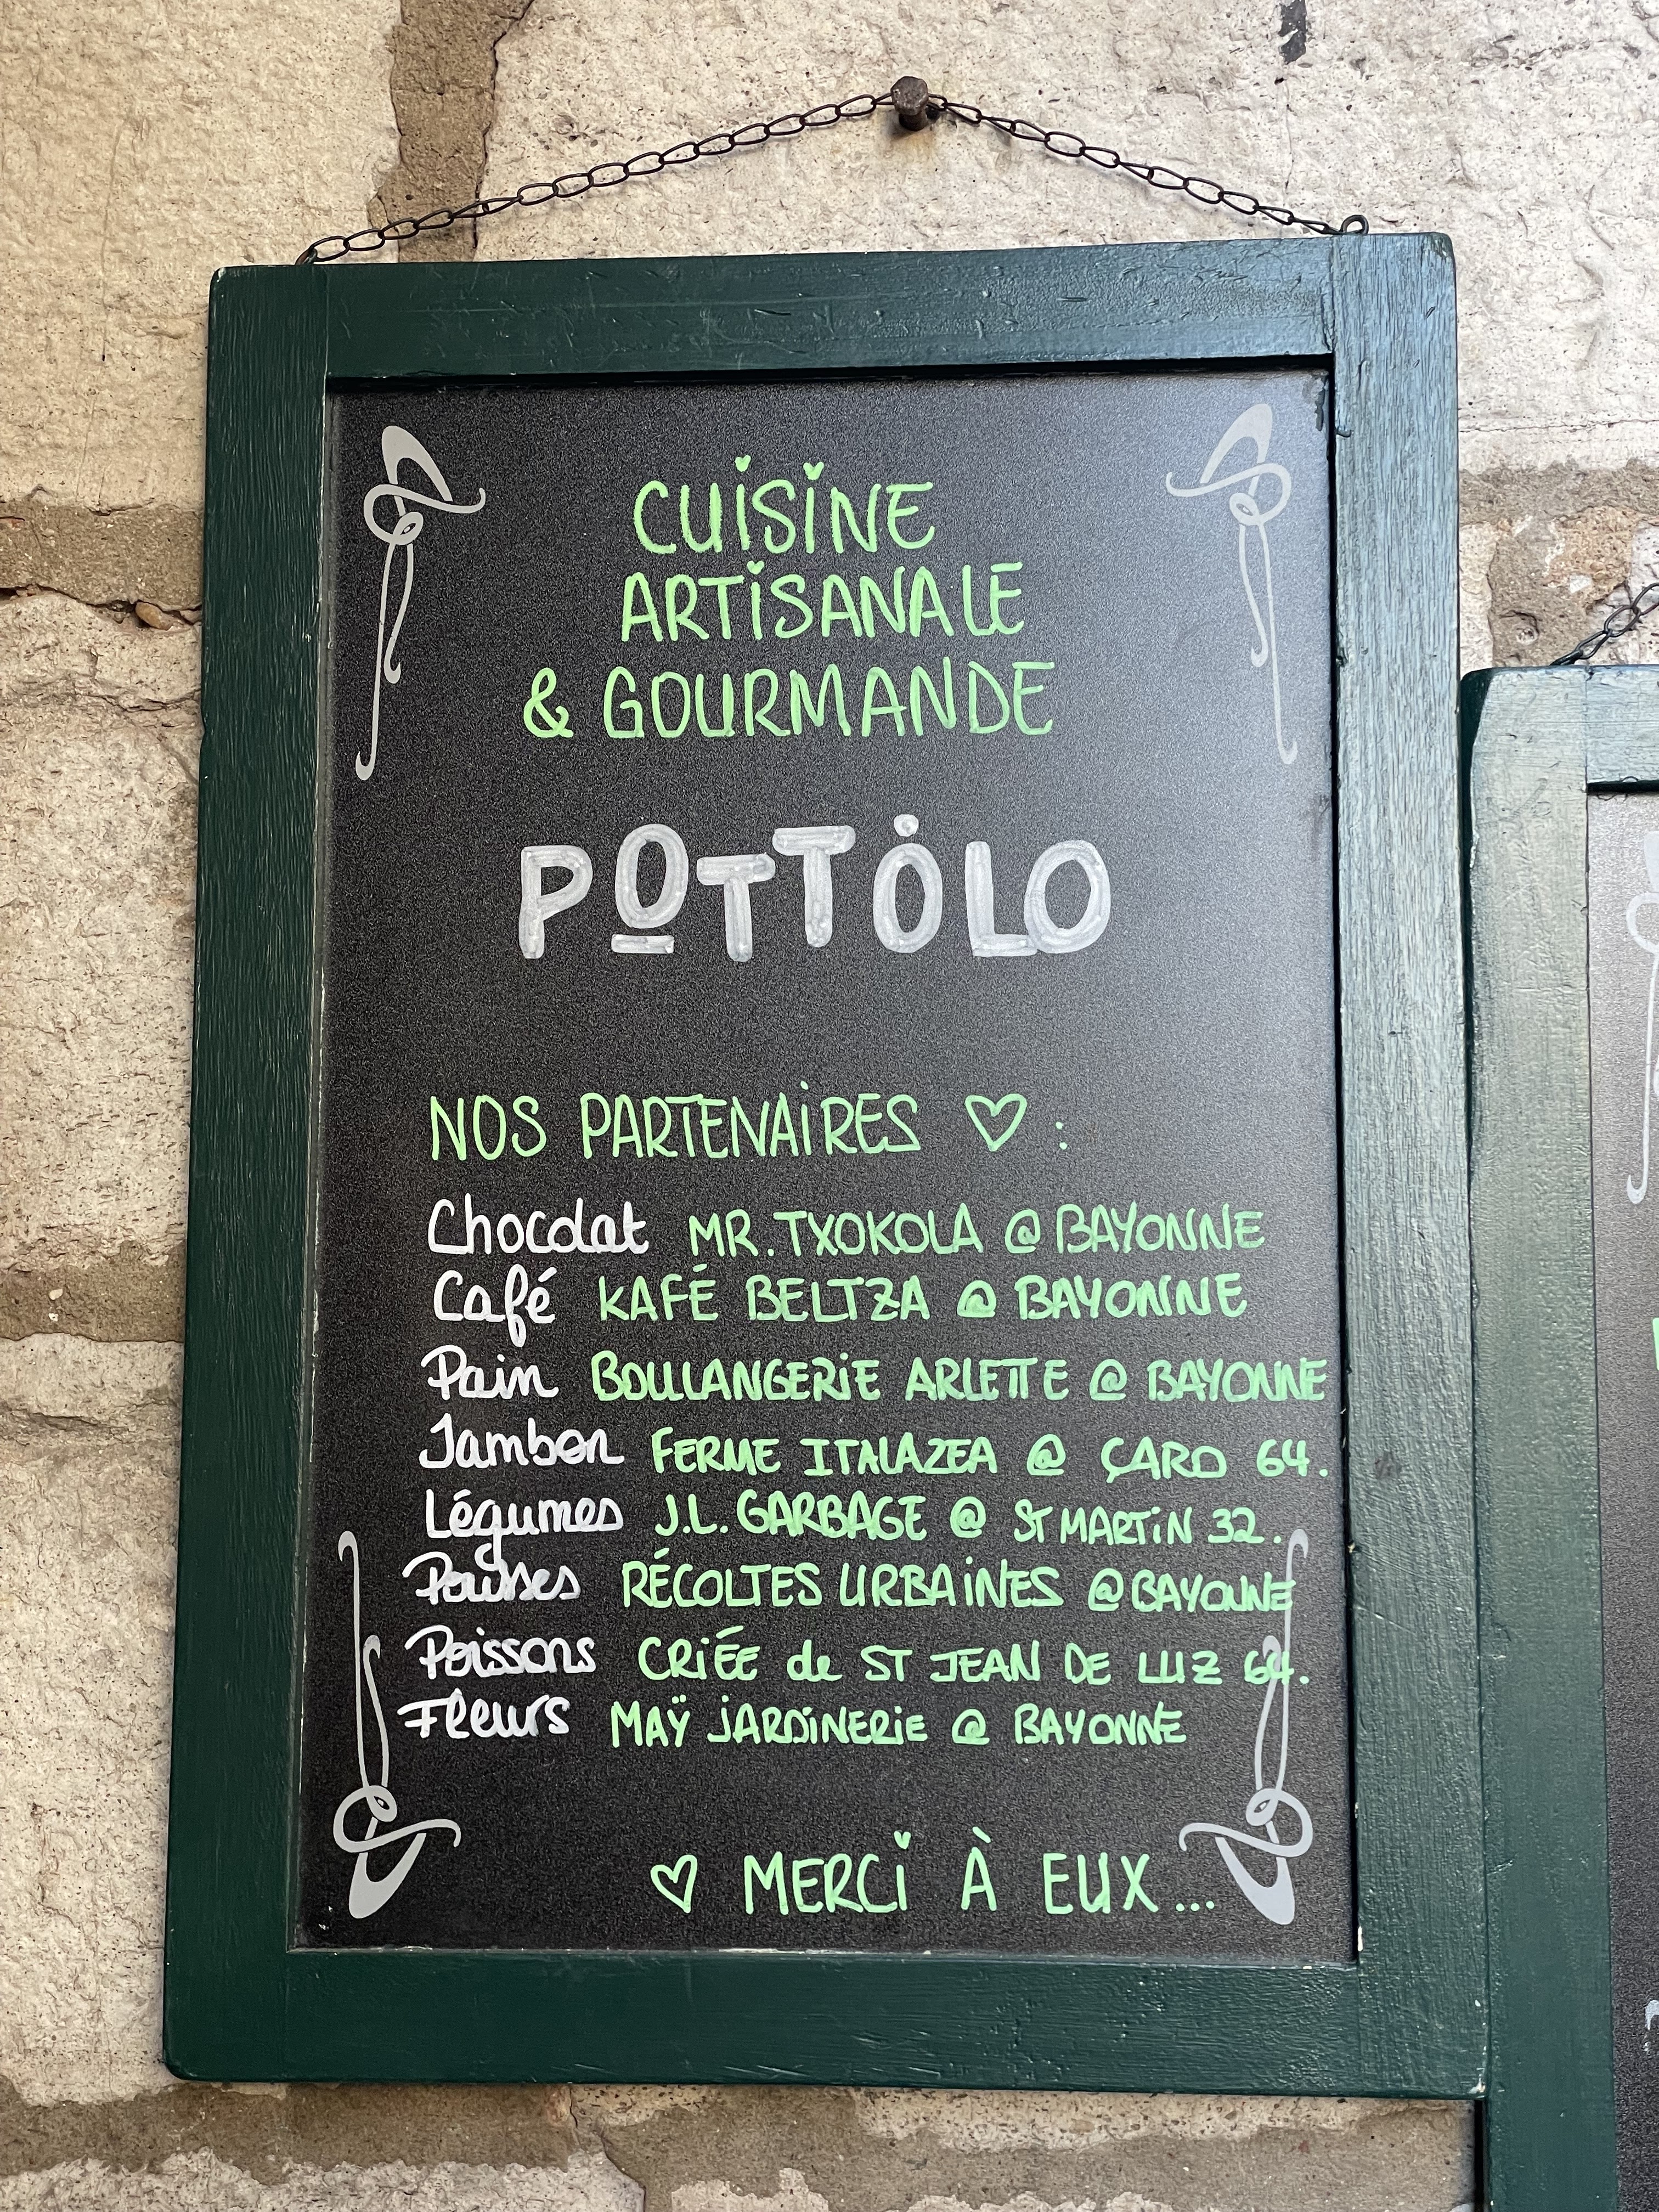 CUISINE
ARTISANALE
& GOURMANDE
POTTOLO
NOS PARTENAIRES ♡ :
Chocolat MR. TXOKOLA @ BAYONNE
Café KAFÉ BELTZA @ BAYONNE
Pain BOULANGERIE ARLETTE @ BAYONNE
Jambon FERME ITALAZEA @ ÇARO 64.
Légumes J.L. GARBAGE @ ST MARTIN 32.
Pousses RÉCOLTES URBAINES @ BAYONNE
Poissons CRIÉE de ST JEAN DE LUZ 64.
Fleurs MAŸ JARDINERIE @ BAYONNE
♡ MERCI À EUX...